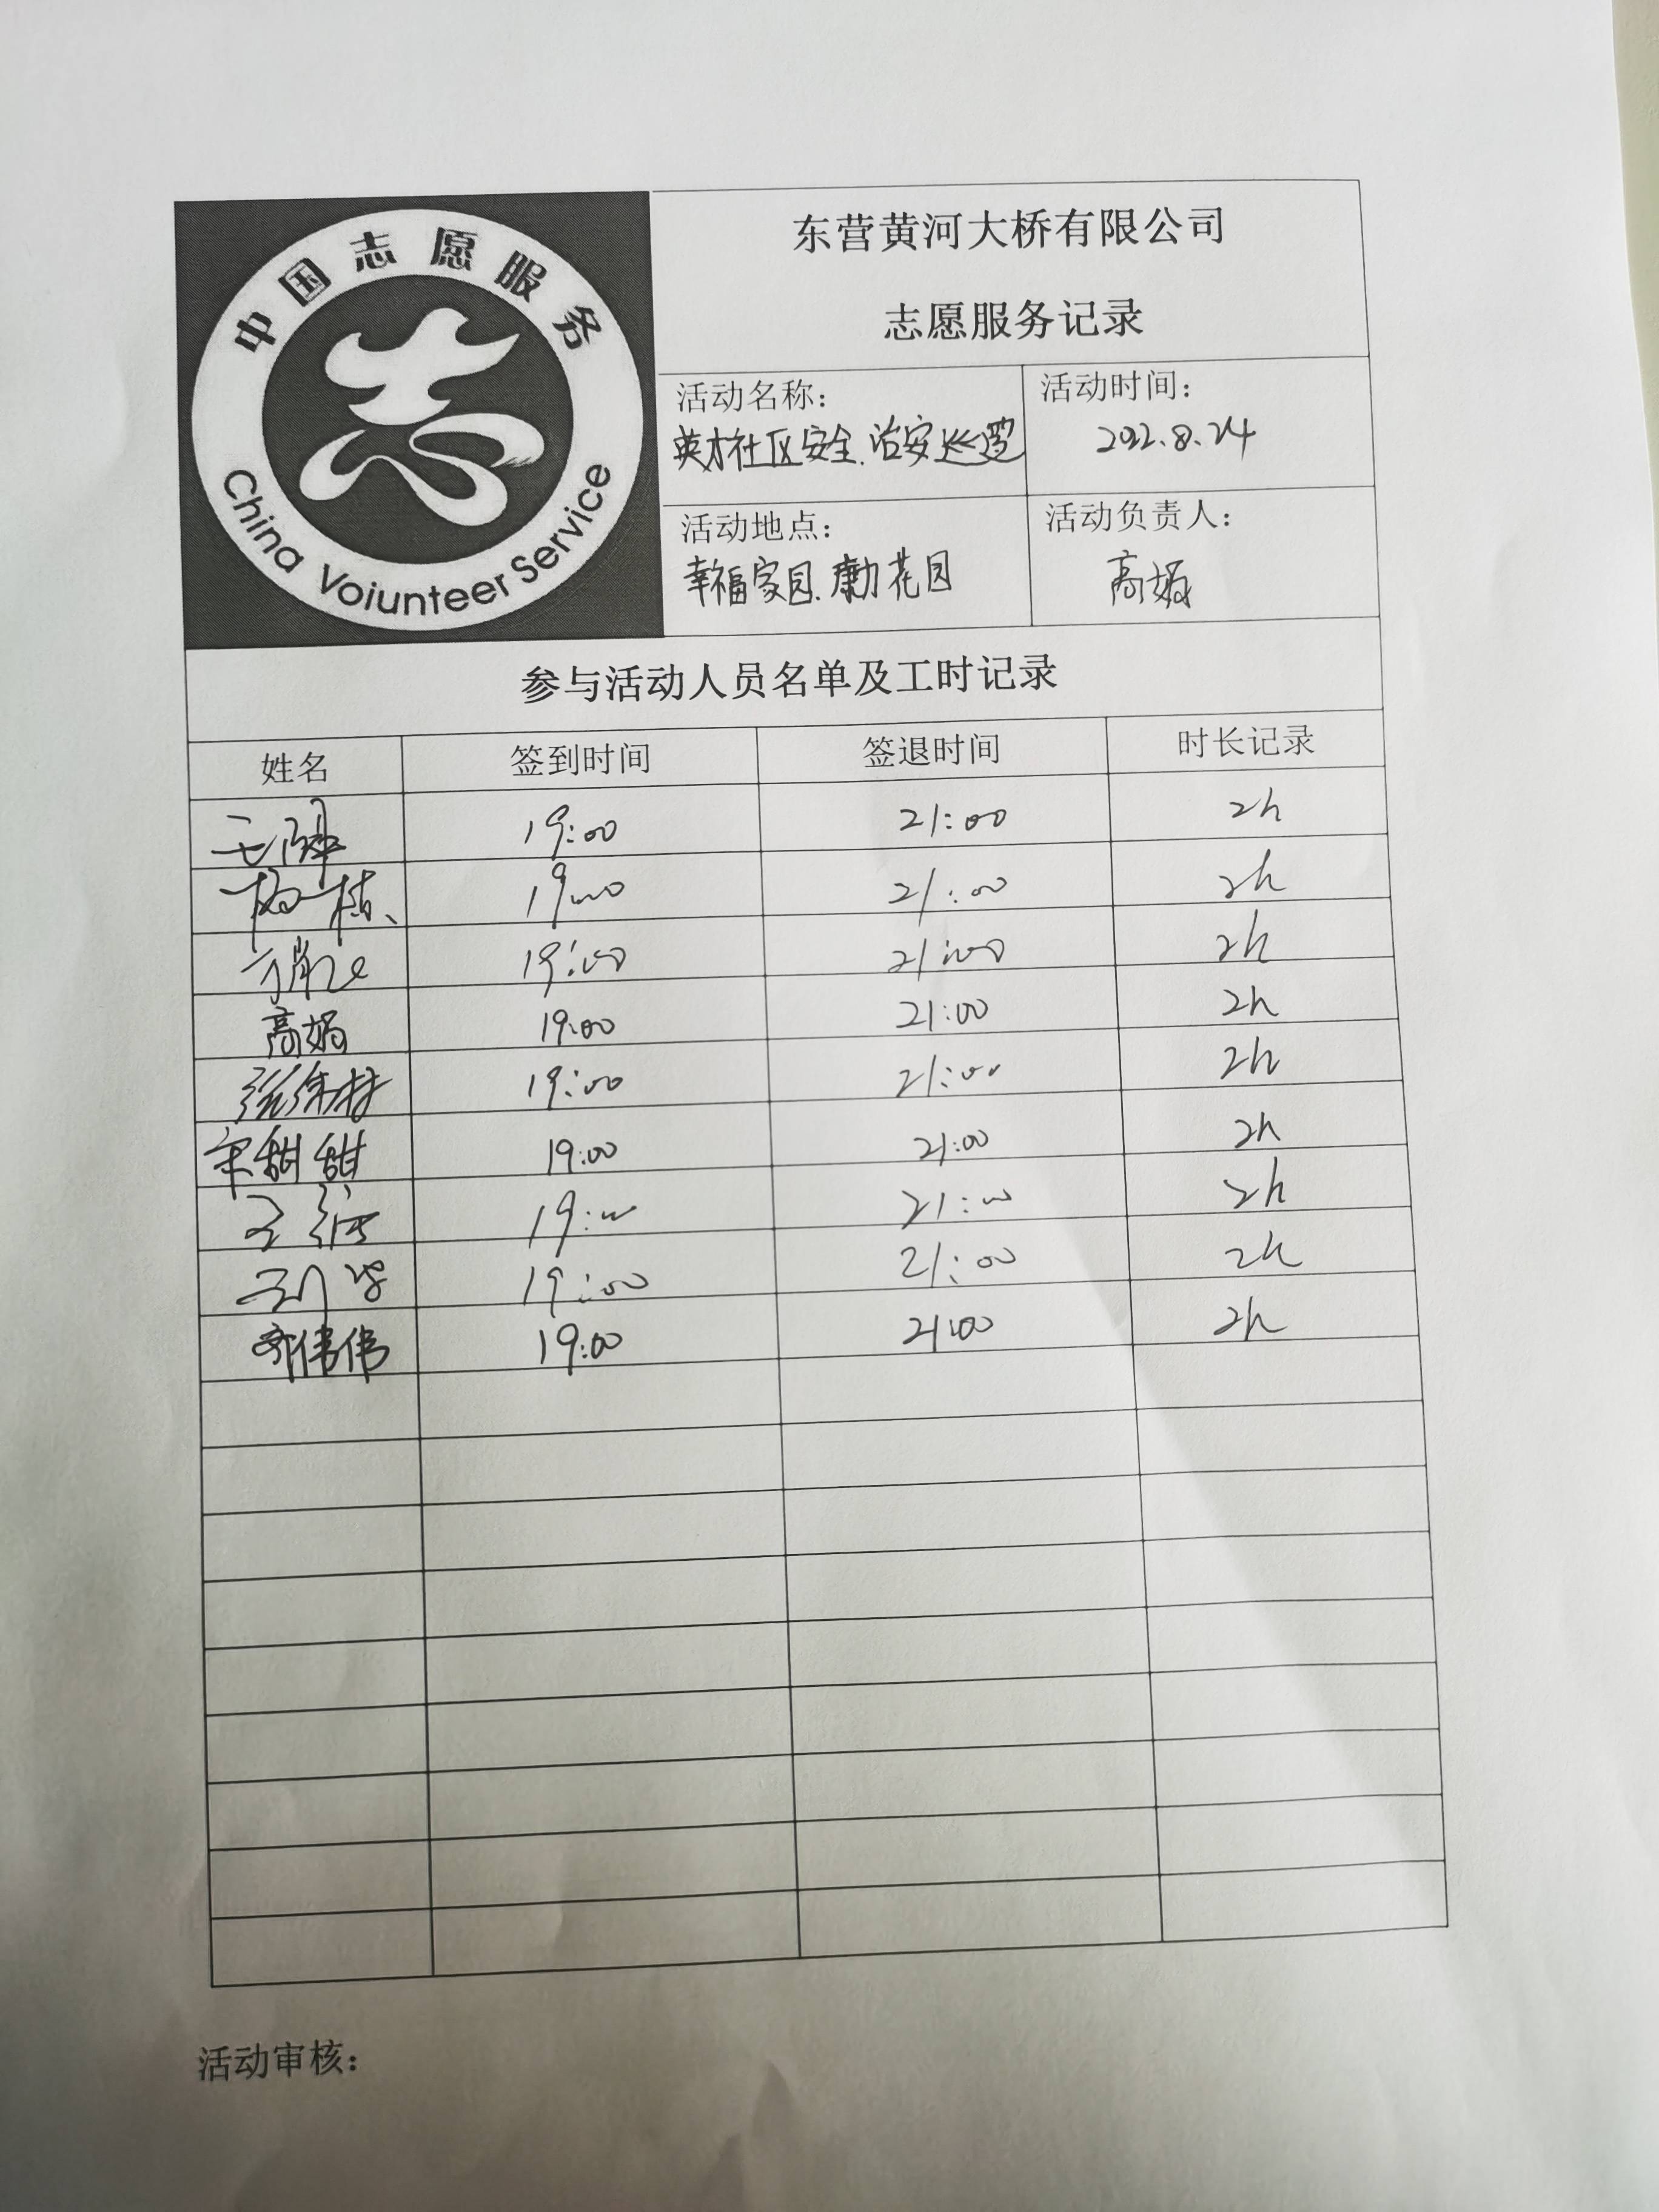 中国志愿服务
China Voiunteer Service
东营黄河大桥有限公司
志愿服务记录
活动名称：
英才社区安全.治安巡逻
活动时间：
2022.8.24
活动地点：
幸福家园.康力花园
活动负责人：
高娟
参与活动人员名单及工时记录
姓名 签到时间 签退时间 时长记录
19:00 21:00 2h
杨桂 19:00 21:00 2h
19:00 21:00 2h
高娟 19:00 21:00 2h
19:00 21:00 2h
宋甜甜 19:00 21:00 2h
19:00 21:00 2h
19:00 21:00 2h
齐伟伟 19:00 21:00 2h
活动审核：